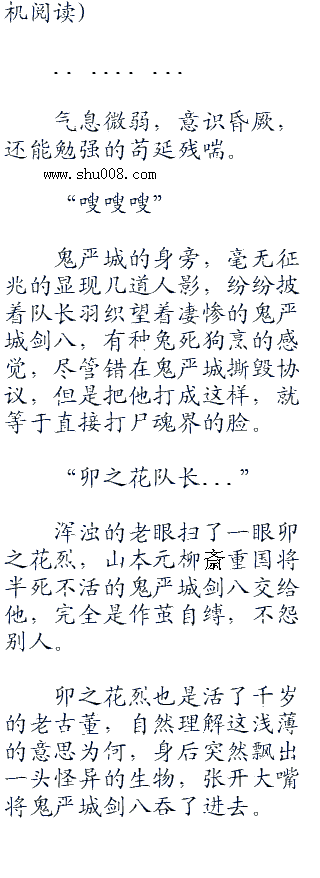 机阅读)
.. .... ...
气息微弱，意识昏厥，
还能勉强的苟延残喘。
www.shu008.com
“嗖嗖嗖”
鬼严城的身旁，毫无征
兆的显现几道人影，纷纷披
着队长羽织望着凄惨的鬼严
城剑八，有种兔死狗烹的感
觉，尽管错在鬼严城撕毁协
议，但是把他打成这样，就
等于直接打尸魂界的脸。
“卯之花队长...”
浑浊的老眼扫了一眼卯
之花烈，山本元柳斎重国将
半死不活的鬼严城剑八交给
他，完全是作茧自缚，不怨
别人。
卯之花烈也是活了千岁
的老古董，自然理解这浅薄
的意思为何，身后突然飘出
一头怪异的生物，张开大嘴
将鬼严城剑八吞了进去。